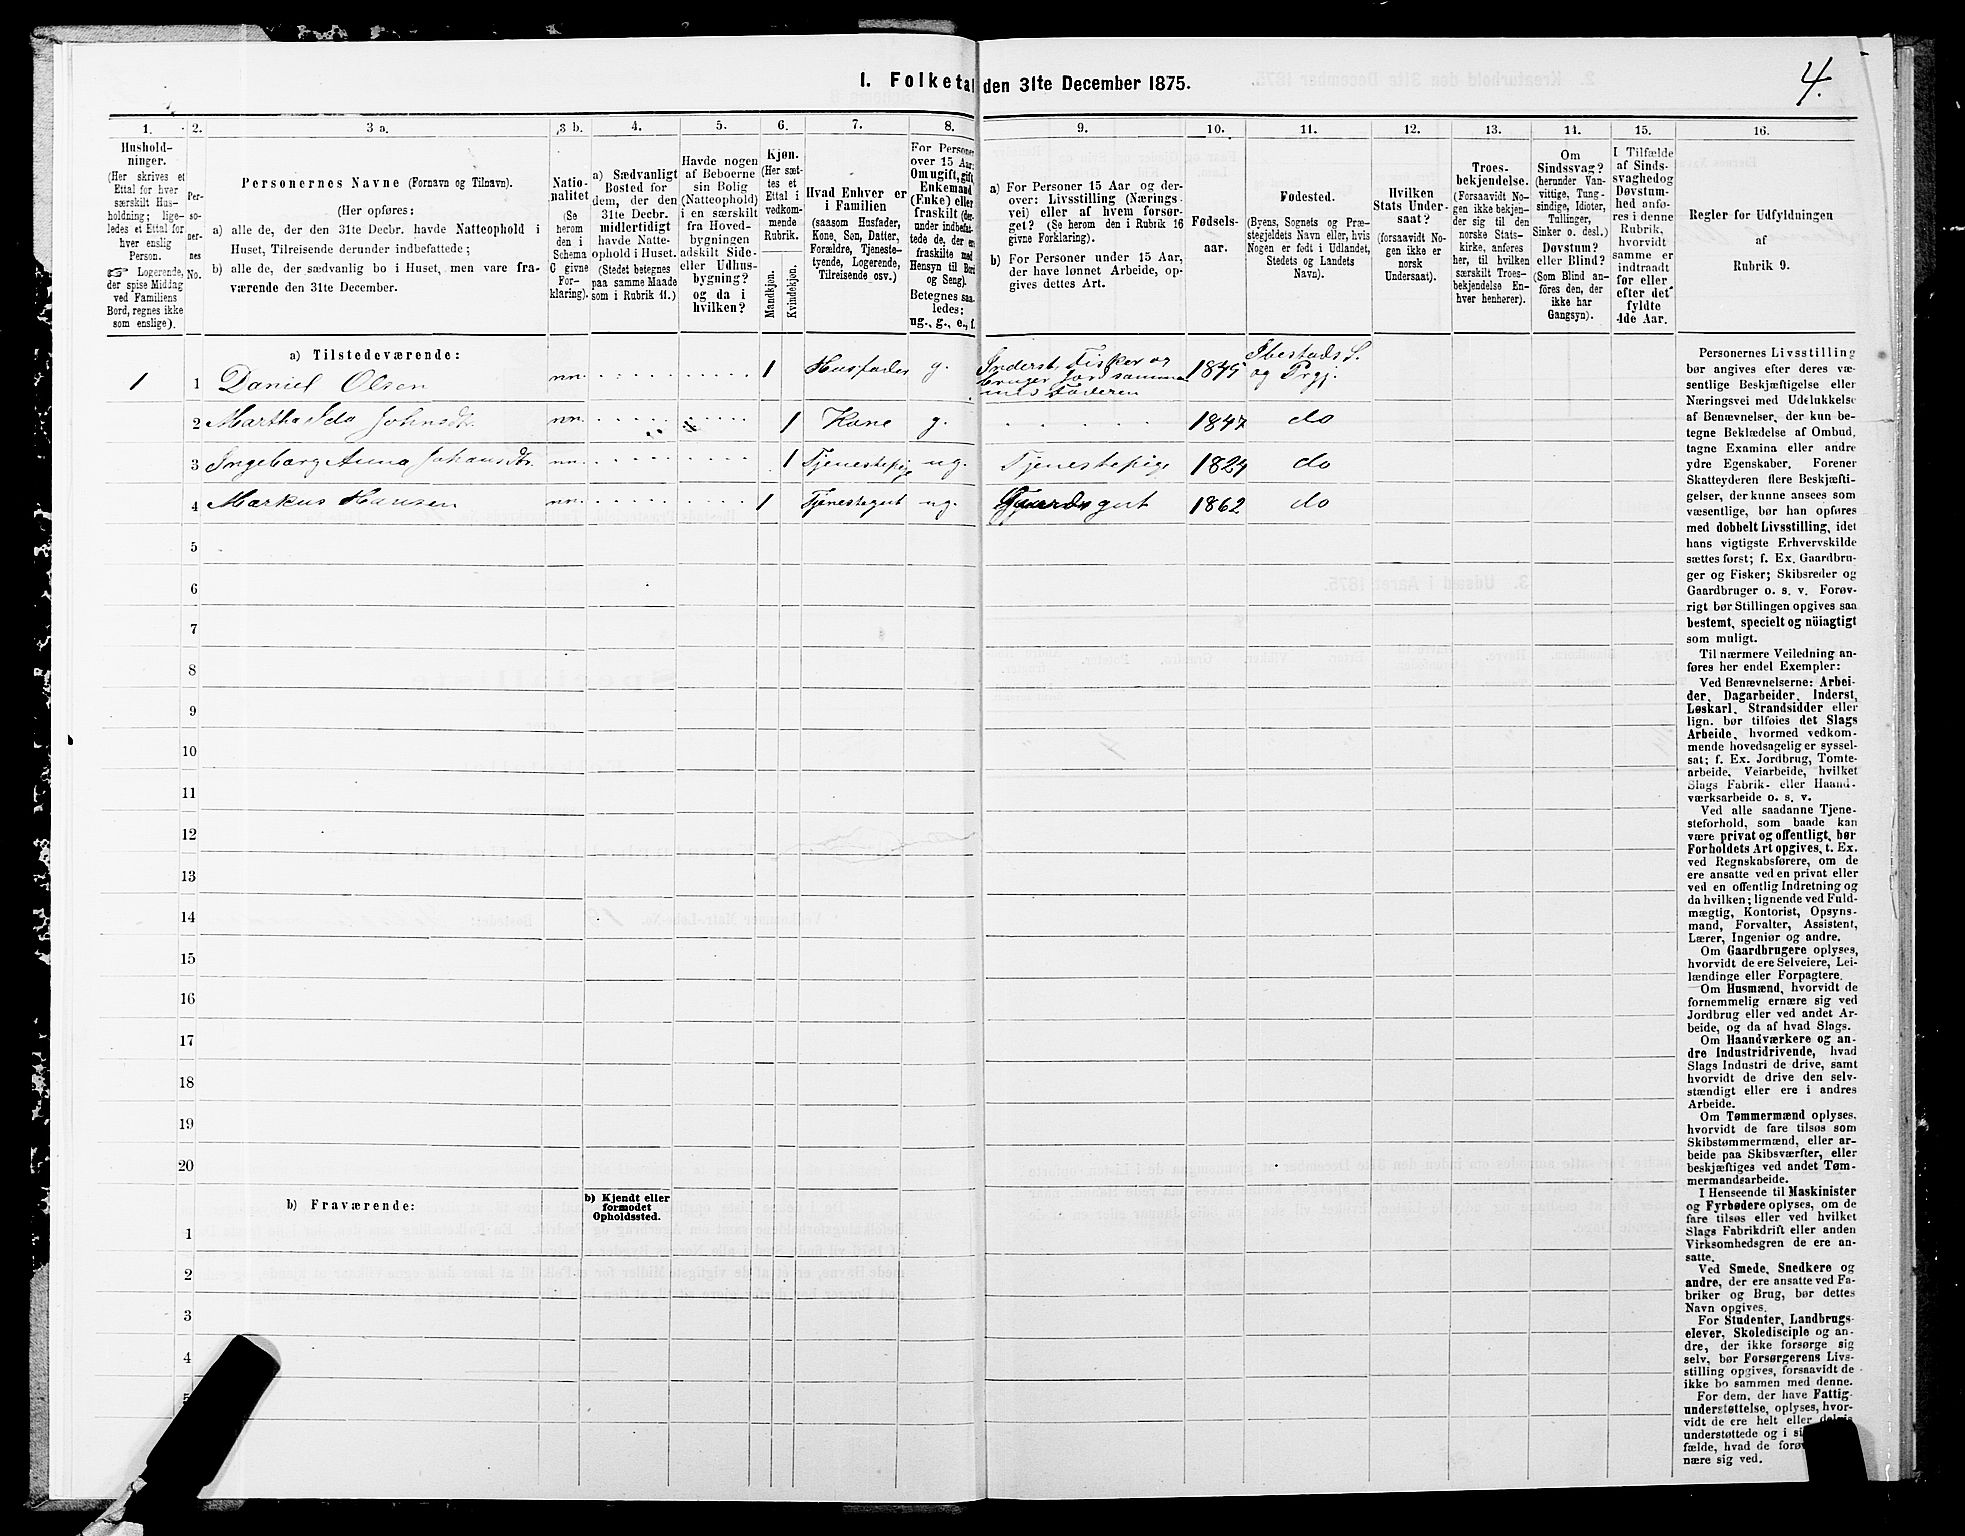 I. Folketal den 31te December 1875.
4.
1.
Hushold-
ninger.
(Her skrives et
Ettal for hver
særskilt Hus-
holdning; lige-
ledes et Ettal for
hver enslig
Person.
☞ Logerende,
der spise Middag
ved Familiens
Bord, regnes ikke
som enslige).
2.
Per-
so-
ner-
nes
No.
3 a.
Personernes Navne (Fornavn og Tilnavn).
(Her opføres:
a) alle de, der den 31te Decbr. havde Natteophold i
Huset, Tilreisende derunder indbefattede;
b) alle de, der sædvanlig bo i Huset, men vare fra-
værende den 31te December.
3 b.
Natio-
nalitet
(Se
herom
den i
Schema
C givne
For-
klaring).
4.
a) Sædvanligt
Bosted for
dem, der den
31te Decbr.
midlertidigt
havde Natte-
ophold i Huset.
(Stedet betegnes
paa samme Maade
som i Rubrik 11.)
5.
Havde nogen
af Beboerne
sin Bolig
(Natteophold)
i en særskilt
fra Hoved-
bygningen
adskilt Side-
eller Udhus-
bygning?
og da i
hvilken?
6.
Kjøn.
(Her sæt-
tes et
Ettal i
vedkom-
mende
Rubrik.
Mandkjøn.
Kvindekjøn.
7.
Hvad Enhver er
i Familien
(saasom Husfader,
Kone, Søn, Datter,
Forældre, Tjeneste-
tyende, Logerende,
Tilreisende osv.)
8.
For Personer
over 15 Aar:
Om ugift, gift
Enkemand
(Enke) eller
fraskilt (der-
under indbefat-
tede de, der er
fraskilte med
Hensyn til Bord
og Seng).
Betegnes saa-
ledes:
ug., g., e., f.
9.
a) For Personer 15 Aar og der-
over: Livsstilling (Nærings-
vei) eller af hvem forsør-
get? (Se herom den i Rubrik 16
givne Forklaring).
b) For Personer under 15 Aar,
der have lønnet Arbeide, op-
gives dettes Art.
10.
Fødsels-
aar.
11.
Fødested.
(Byens, Sognets og Præ-
stegjeldets Navn eller, hvis
Nogen er født i Udlandet,
Stedets og Landets
Navn).
12.
Hvilken
Stats Under-
saat?
(forsaavidt No-
gen ikke er
norsk
Undersaat).
13.
Troes-
bekjendelse.
(Forsaavidt No-
gen ikke bekjen-
der sig til den
norske Stats-
kirke, anføres
her, til hvilken
særskilt Troes-
bekjendelse En-
hver henhører).
14.
Om
Sindssvag?
(herunder Van-
vittige, Tung-
sindige, Idioter,
Tullinger,
Sinker o. desl.)
Døvstum?
eller Blind?
(Som Blind an-
føres den, der
ikke har
Gangsyn).
15.
I Tilfælde
af Sinds-
svaghed og
Døvstum-
hed anfø-
res i denne
Rubrik,
hvorvidt
samme er
indtraadt
før eller
efter det
fyldte
4de Aar.
16.
Regler for Udfyldningen
af
Rubrik 9.
a) Tilstedeværende:
1 1 Daniel Olsen nn. 1 Husfader g. Inderst, Fisker og
bruger Jord sammen
med Faderen 1845 Ibestads S.
og Prgj.
2 Martha Ida Johnsdtr. nn. 1 Kone g. 1847 do
3 Ingeborg Anna Johansdtr. nn. 1 Tjenestepige ug. Tjenestepige 1824 do
4 Markus Hansen nn. 1 Tjenestegut ug. Gaardsgut 1862 do
5
6
7
8
9
10
11
12
13
14
15
16
17
18
19
20
b) Fraværende:
b) Kjendt eller
formodet
Opholdssted.
1
2
3
4
5
Personernes Livsstilling
bør angives efter deres væ-
sentlige Beskjæftigelse eller
Næringsvei med Udelukkelse
af Benævnelser, der kun be-
tegne Beklædelse af Ombud,
tagne Examina eller andre
ydre Egenskaber. Forener
Skatteyderen flere Beskjæfti-
gelser, der kunne ansees som
væsentlige, bør han opføres
med dobbelt Livsstilling, idet
hans vigtigste Erhvervskilde
sættes først; f. Ex. Gaardbru-
ger og Fisker; Skibsreder og
Gaardbruger o. s. v. Forøv-
rigt bør Stillingen opgives saa
bestemt, specielt og nöiagtigt
som muligt.
Til nærmere Veiledning an-
føres her endel Exempler:
Ved Benævnelserne: Arbei-
der, Dagarbeider, Inderst,
Løskarl, Strandsidder eller
lign. bør tilføies det Slags
Arbeide, hvormed vedkom-
mende hovedsagelig er syssel-
sat; f. Ex. Jordbrug, Tomte-
arbeide, Veiarbeide, hvilket
Slags Fabrik- eller Haand-
værksarbeide o. s. v.
Ved alle saadanne Tjene-
steforhold, som baade kan
være privat og offentligt, bør
Forholdets Art opgives, t. Ex.
ved Regnskabsførere, om de
ere ansatte ved en privat eller
ved en offentlig Indretning og
da hvilken; lignende ved Fuld-
mægtig, Kontorist, Opsyns-
mand, Forvalter, Assistent,
Lærer, Ingeniør og andre.
Om Gaardbrugere oplyses,
hvorvidt de ere Selveiere, Lei-
lændinge eller Forpagtere.
Om Husmænd, hvorvidt de
fornemmelig ernære sig ved
Jordbrug eller ved andet Ar-
beide, og da af hvad Slags.
Om Haandværkere og an-
dre Industridrivende, hvad
Slags Industri de drive, samt
hvorvidt de drive den selv-
stændigt eller ere i andres
Arbeide.
Om Tømmermænd oplyses,
hvorvidt de fare tilsøs som
Skibstømmermænd, eller ar-
beide paa Skibsværfter, eller
beskjæftiges ved andet Tøm-
mermandsarbeide.
I Henseende til Maskinister
og Fyrbødere oplyses, om de
fare tilsøs eller ved hvilket
Slags Fabrikdrift eller anden
Virksomhedsgren de ere an-
satte.
Ved Smede, Snedkere og
andre, der ere ansatte ved Fa-
briker og Brug, bør dettes
Navn opgives.
For Studenter, Landbrugs-
elever, Skoledisciple og an-
dre, der ikke forsørge sig
selv, bør Forsørgerens Livs-
stilling opgives, forsaavidt de
ikke bo sammen med denne.
For dem, der have Fattig-
understøttelse, oplyses, hvor-
vidt de ere helt eller delvis
understøttede og i si
fælde, hvad de forøv
nære sig ved.